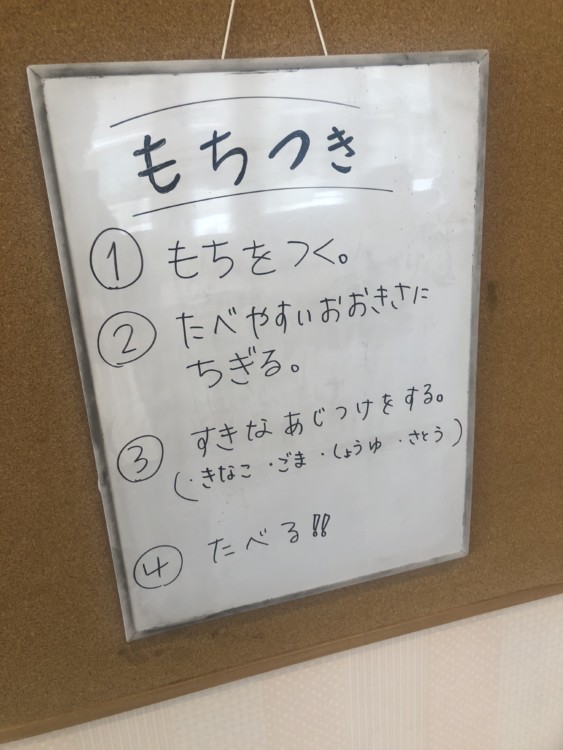 もちつき
① もちをつく。
② たべやすいおおきさに
ちぎる。
③ すきなあじつけをする。
(・きなこ・ごま・しょうゆ・さとう)
④ たべる!!